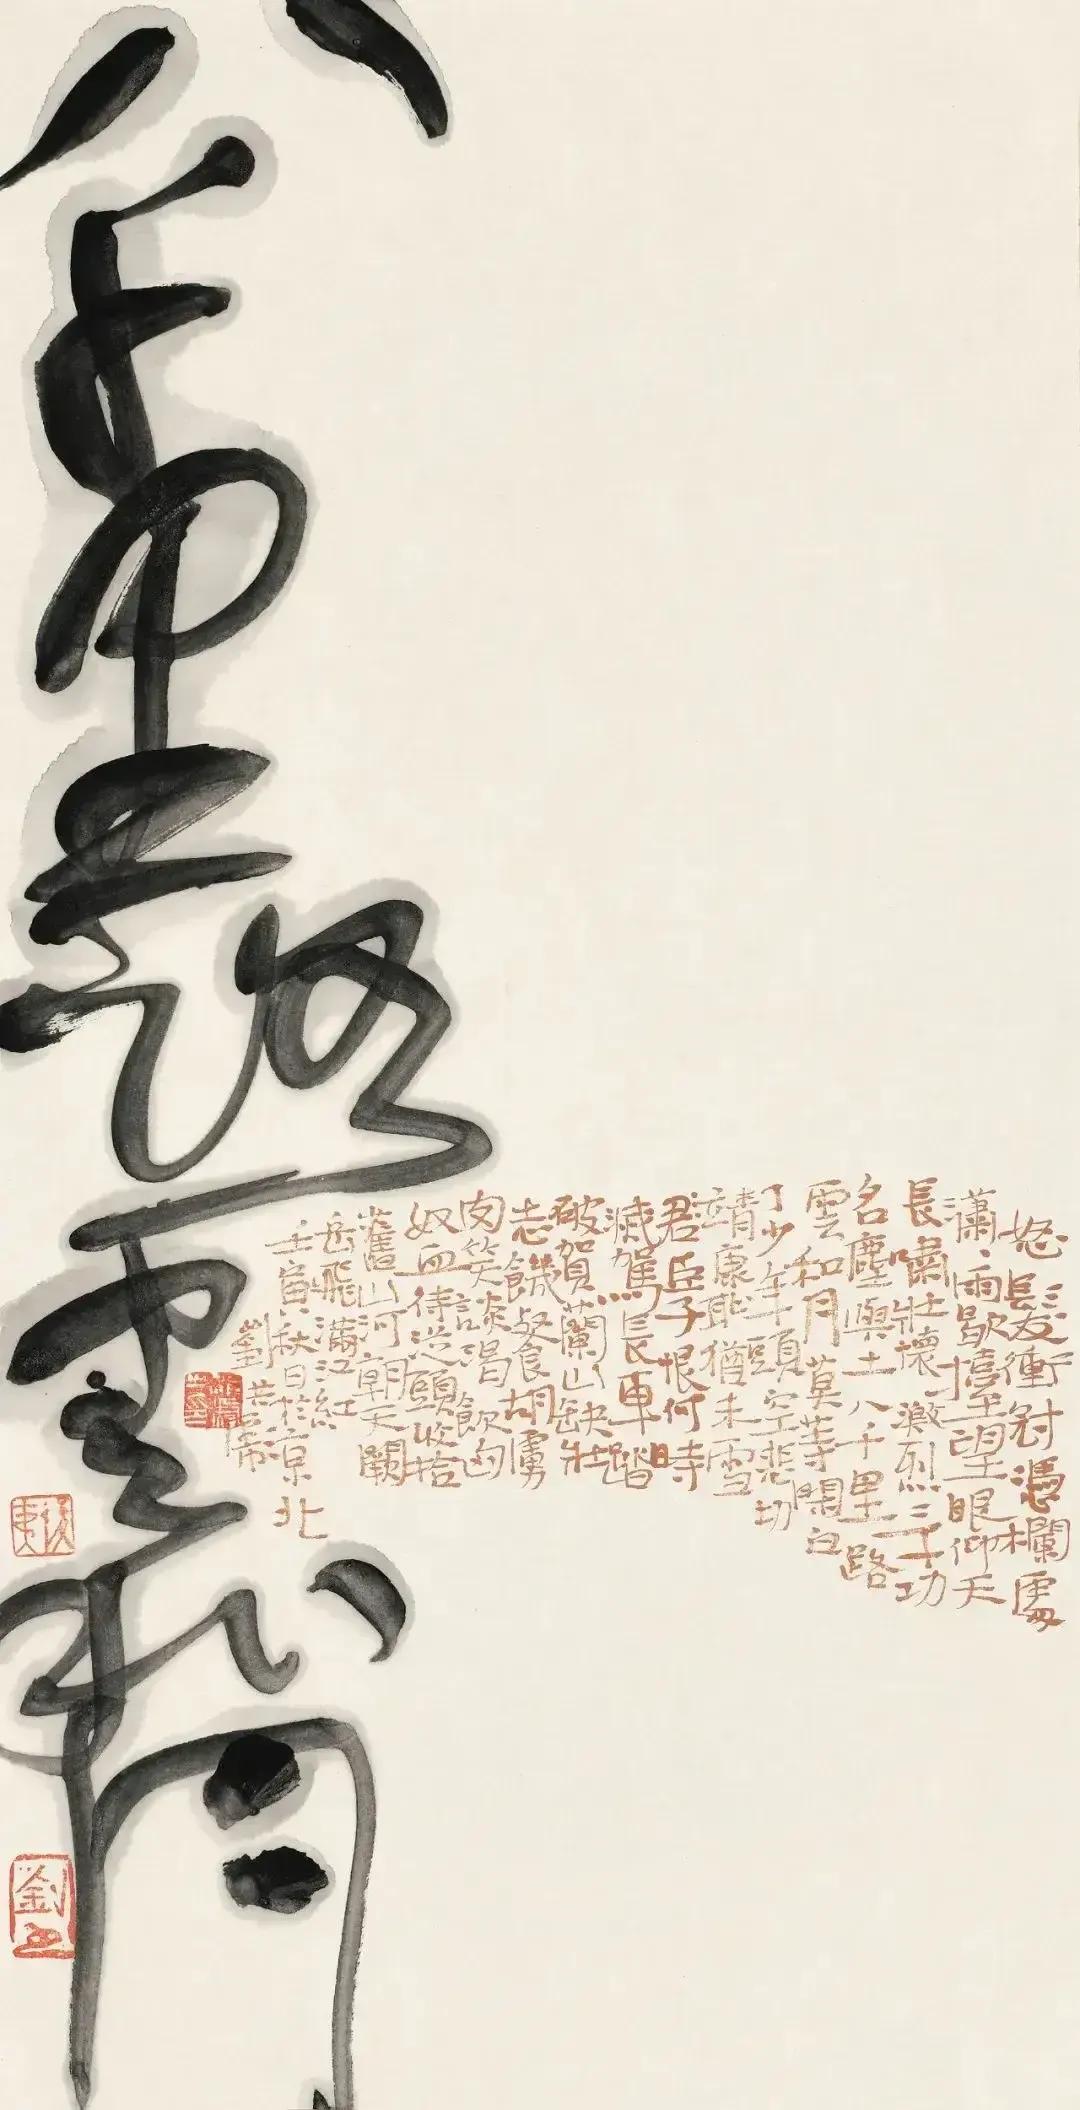 八千里路雲和月
怒髮衝冠憑欄處
瀟、雨歇擡望眼仰天
長嘯壯懷激烈三十功
名塵與土八千里路
雲和月莫等閑白
了少年頭空悲切
靖康恥猶未雪
君臣子恨何時
滅駕長車踏
破賀蘭山缺壯
志饑餐胡虜
肉笑談渴飲匈
奴血待從頭收拾
舊山河朝天闕
岳飛滿江紅
壬寅秋日於京北
劉
劉